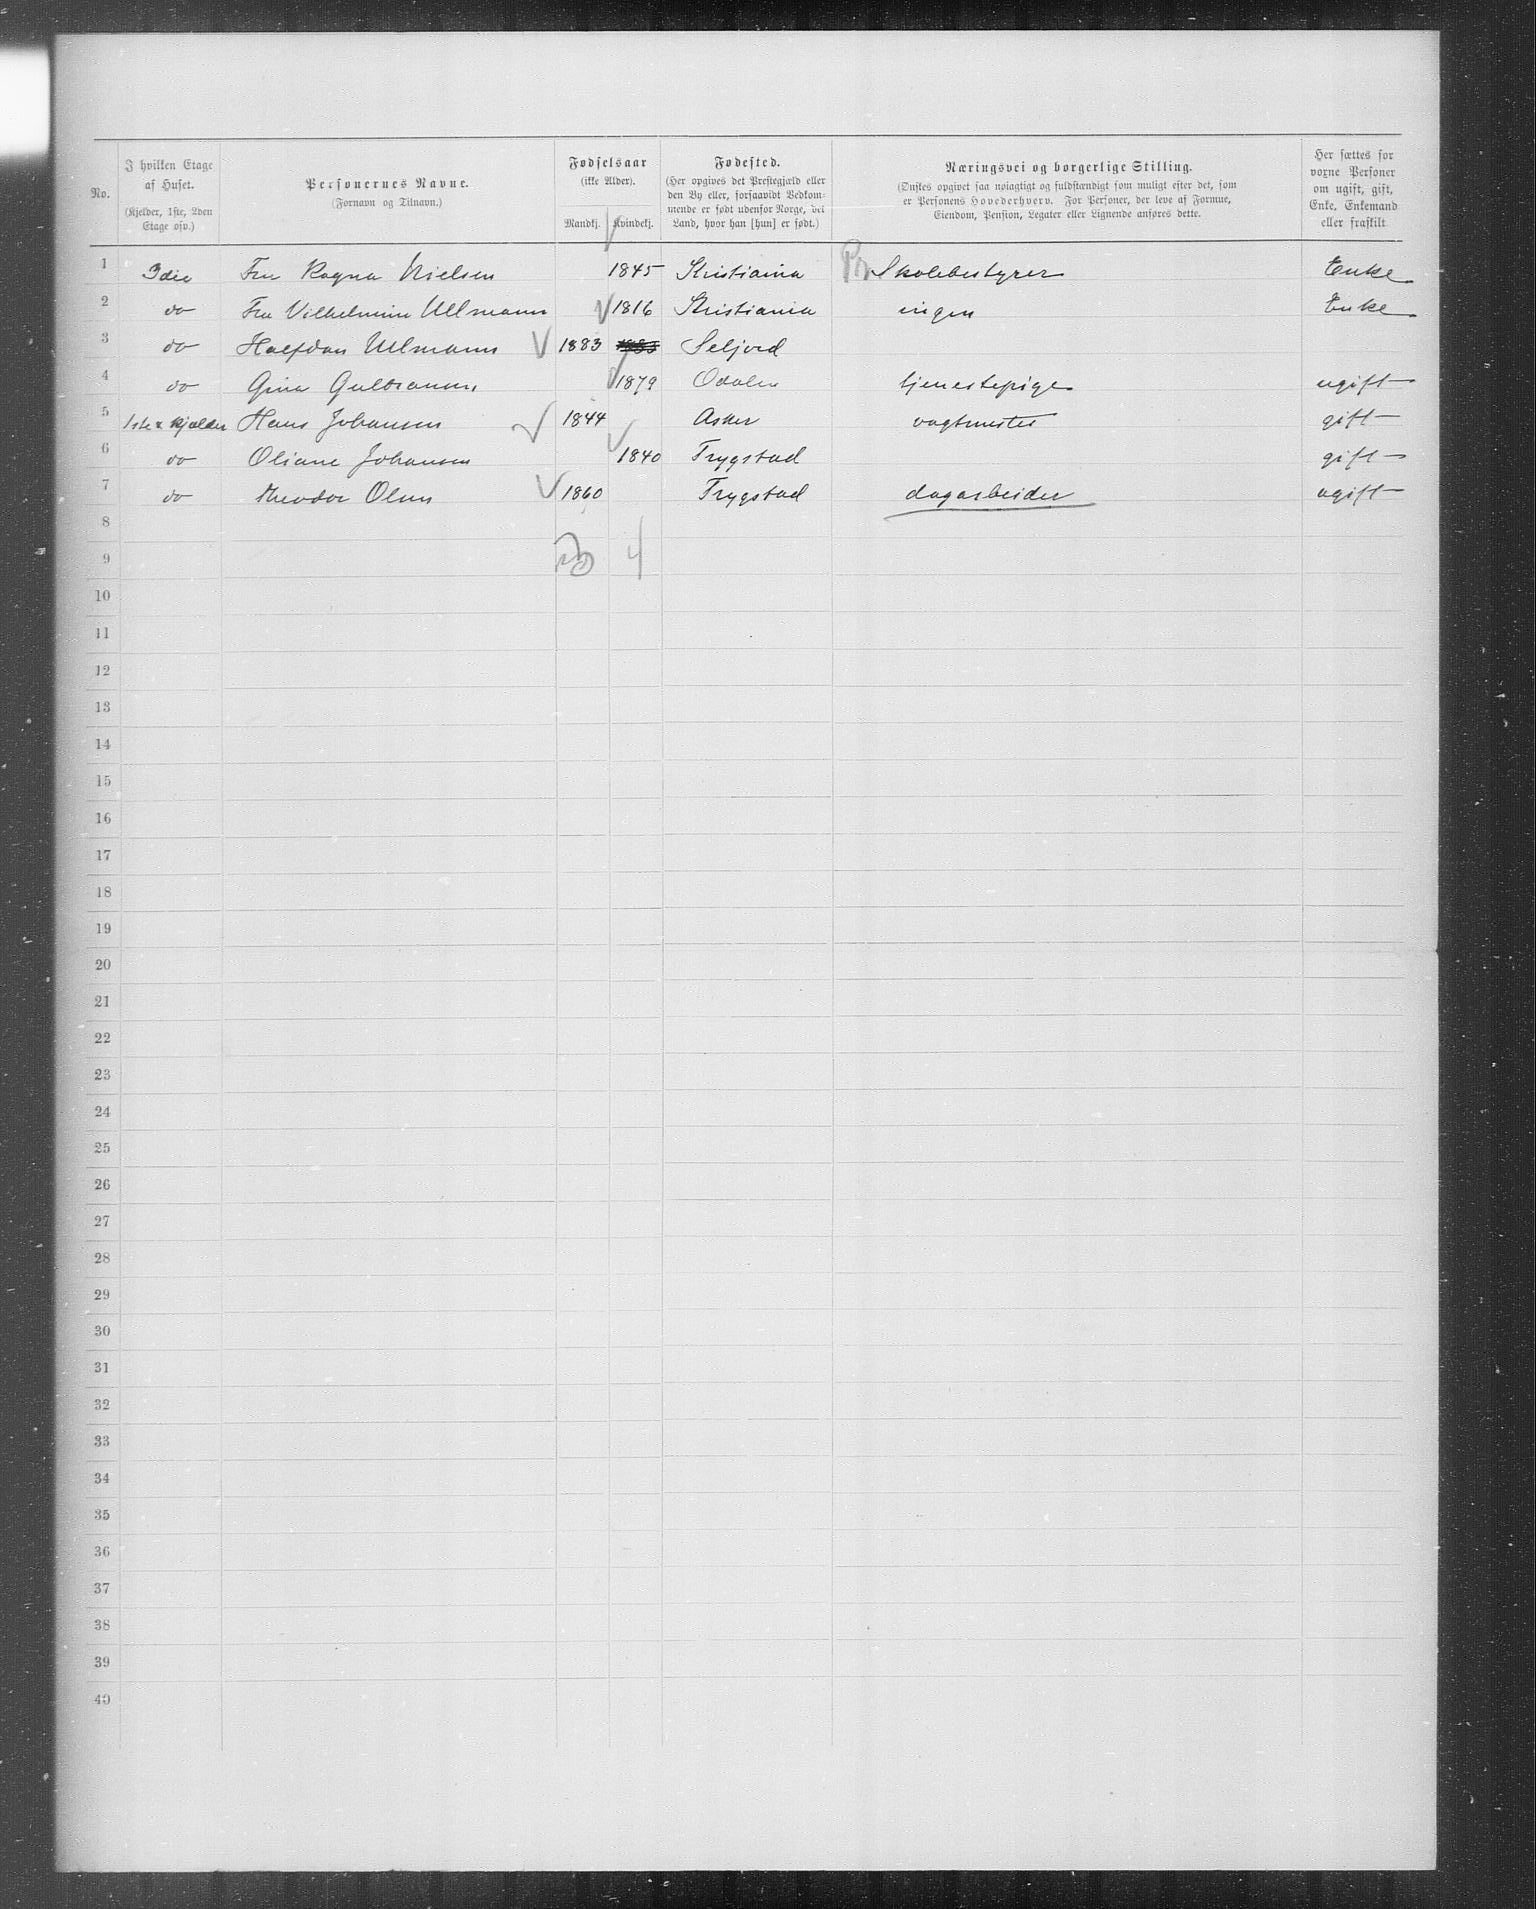 No.
I hvilken Etage af Huset.
(Kjelder, 1ste, 2den Etage osv.)
Personernes Navne.
(Fornavn og Tilnavn.)
Fødselsaar
(ikke Alder).
Mandkj.
Kvindekj.
Fødested.
(Her opgives det Prestegjæld eller
den By eller, forsaavidt Vedkom-
mende er født udenfor Norge, det
Land, hvor han [hun] er født.)
Næringsvei og borgerlige Stilling.
(Ønskes opgivet saa nøiagtigt og fuldstændigt som muligt efter det, som
er Personens Hovederhverv. For Personer, der leve af Formue,
Eiendom, Pension, Legater eller Lignende anføres dette.
Her sættes for
voxne Personer
om ugift, gift,
Enke, Enkemand
eller fraskilt
1 3die Fru Ragna Nielsen 1845 Kristiania Skolebestyrer Enke
2 do Fru Vilhelmine Ullmann 1816 Kristiania ingen Enke
3 do Halfdan Ullmann 1883 Seljord
4 do Gina Gulbransen 1879 Odalen tjenestepige ugift
5 1ste & Kjælder Hans Johansen 1844 Asker vagtmester gift
6 do Oliane Johansen 1840 Trygstad gift
7 do Theodor Olsen 1860 Trygstad dagarbeider ugift
8
9 4
10
11
12
13
14
15
16
17
18
19
20
21
22
23
24
25
26
27
28
29
30
31
32
33
34
35
36
37
38
39
40